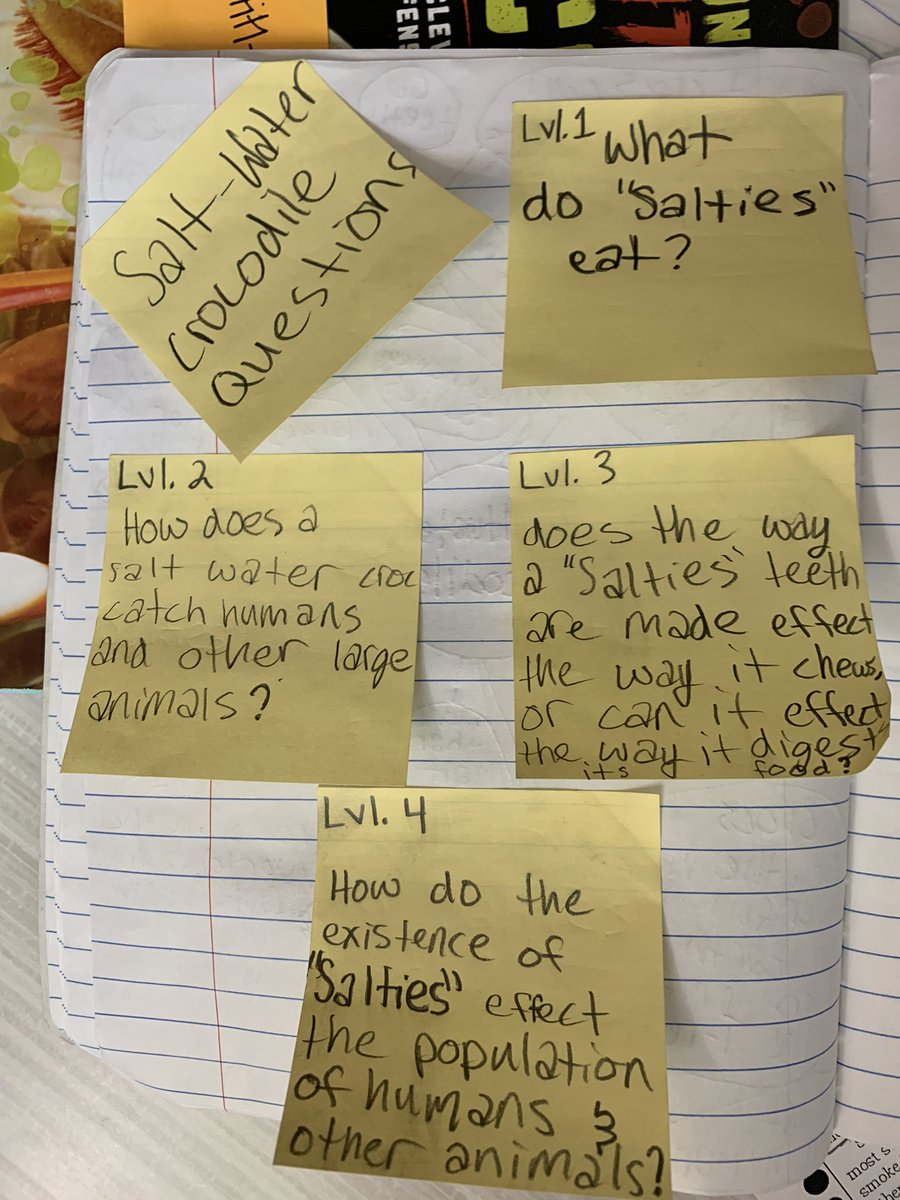 Salt-Water
crocodile
questions
Lvl. 1 What
do "Salties"
eat?
Lvl. 2
How does a
salt water croc
catch humans
and other large
animals?
Lvl. 3
does the way
a "Salties" teeth
are made effect
the way it chews,
or can it effect
the way it digest
it's food?
Lvl. 4
How do the
existence of
"Salties" effect
the population
of humans &
other animals?
most s
smoke